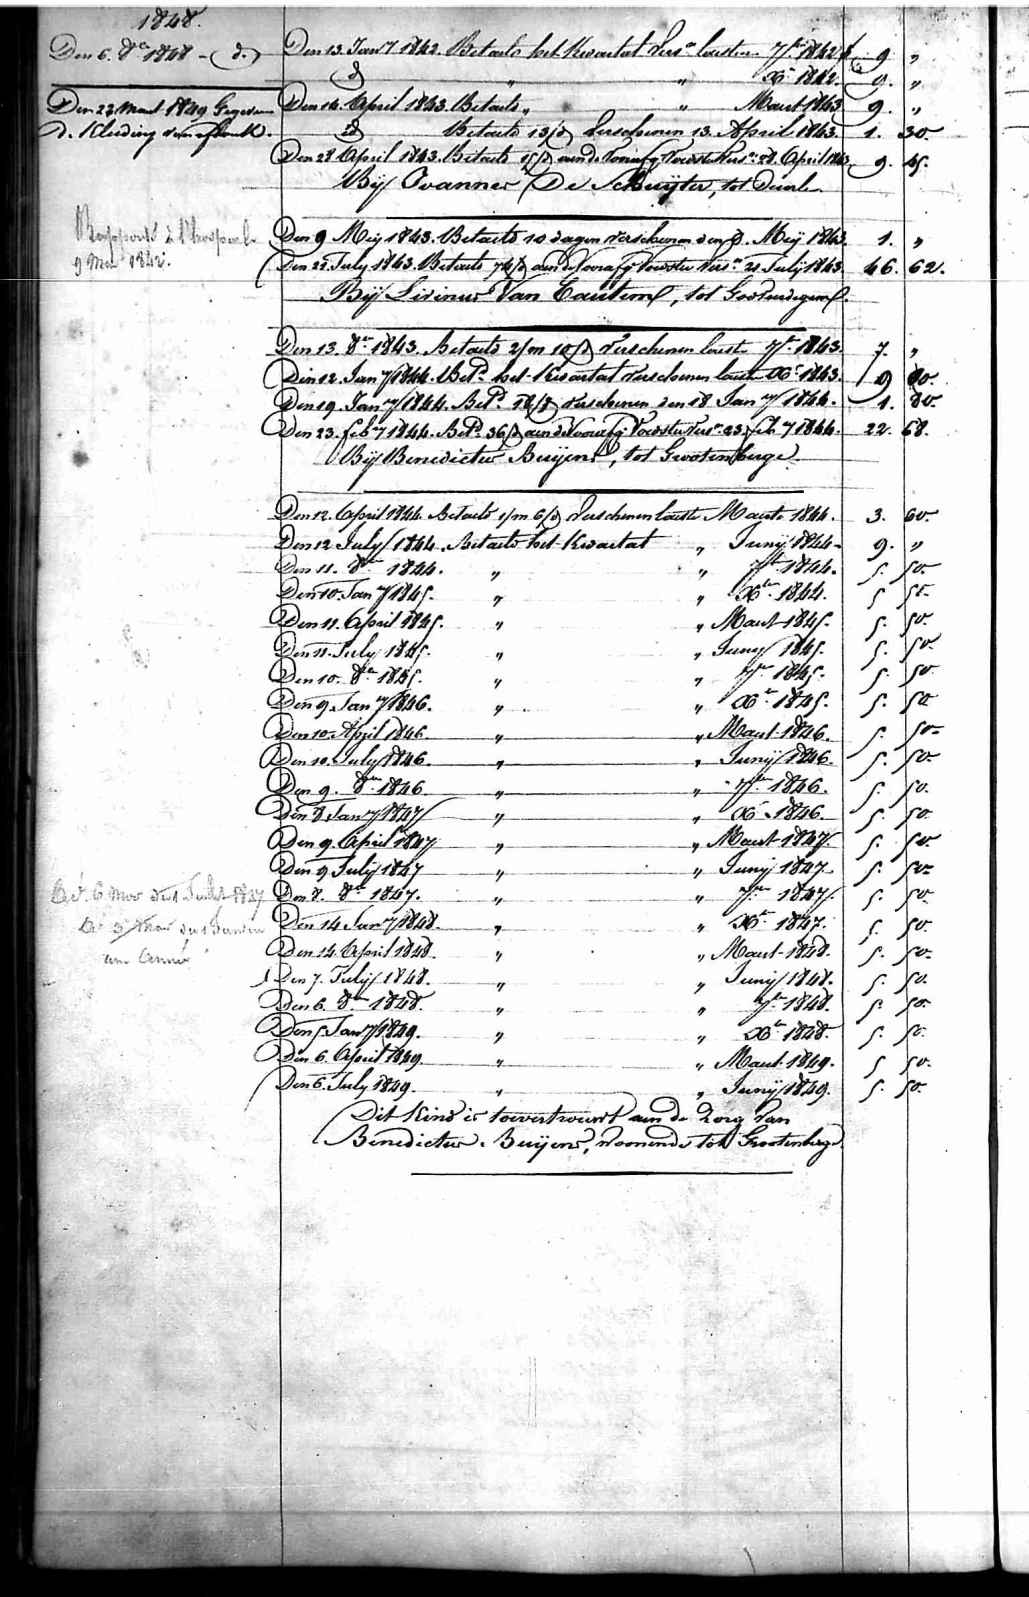 1848.
Den 6. 8er 1848 - (d.)
Den 23 Maart 1849 Gegeven
de Kleeding
Rapporté à l'hospice le
9 Mei 1843.
Red. 6 mos 1847
an Année
Den 13. Jany 1843. Betaeld het Kwartael Versn laesten 7br 1842 9 "
d° " " Xr 1842. 9. "
Den 14. April 1843. Betaeld " " Maert 1843 9. "
d° Betaeld 13/d Verschenen 13. April 1843. 1. 30.
Den 28 April 1843. Betaeld aen de Voorafg Voedster Versn 28. April 1843. 9. 45.
Bij Ivanner De Schuijter, tot Deurle
Den 9 Meij 1843. Betaeld 10 dagen verschenen den 8. Meij 1843. 1. "
Den 22 July 1843. Betaeld 74/d aen de Voorafg Voedster Versn 21 July 1843. 46. 62.
Bij Livinus Van Cautere, tot Godverdegem.
Den 13. 8er 1843. Betaeld 2/m 10/d Verschenen laesten 7br 1843. 7. "
Den 12. Jany 1844. Betd het Kwartael verschenen laesten Xr 1843. 9 00.
Den 19. Jany 1844. Betd 18/d verschenen den 18 Jany 1844. 1. 80.
Den 23. feby 1844. Betd 36/d aen de Voorafg Voedster Versn 23 feby 1844. 22. 68.
Bij Benedictus Buijens, tot Grootenberge.
Den 12. April 1844. Betaeld 1/m 6/d Verschenen laesten Maerte 1844. 3. 60.
Den 12 July 1844. Betaeld het Kwartael " Junij 1844 9. "
Den 11. 8er 1844. " " 7br 1844. 5. 50.
Den 10. Jany 1845. " " Xr 1844. 5 50.
Den 11. April 1845. " " Maert 1845. 5. 50.
Den 11. July 1845. " " Junij 1845. 5. 50.
Den 10. 8er 1845. " " 7br 1845. 5. 50.
Den 9 Jany 1846. " " Xr 1845. 5. 50
Den 10. April 1846 " " Maert 1846. 5. 50
Den 10. July 1846 " " Junij 1846. 5. 50.
Den 9. 8er 1846. " " 7br 1846. 5. 50.
Den 8 Jany 1847 " " Xr 1846. 5. 50.
Den 9. April 1847 " " Maert 1847. 5. 50.
Den 9 July 1847 " " Junij 1847. 5. 50
Den 8. 8er 1847. " " 7br 1847. 5. 50.
Den 14 Jany 1848. " " Xr 1847. 5. 50.
Den 14. April 1848. " " Maert 1848. 5. 50.
Den 7. July 1848. " " Junij 1848. 5. 50.
Den 6. 8er 1848. " " 7br 1848. 5. 50.
Den 5. Jany 1849. " " Xr 1848. 5. 50.
Den 6. April 1849. " " Maert 1849. 5 50.
Den 6. July 1849. " " Junij 1849. 5. 50.
Dit Kind is toevertrouwt aen de Zorg van
Benedictus Buijens, woonende tot Grootenberge.